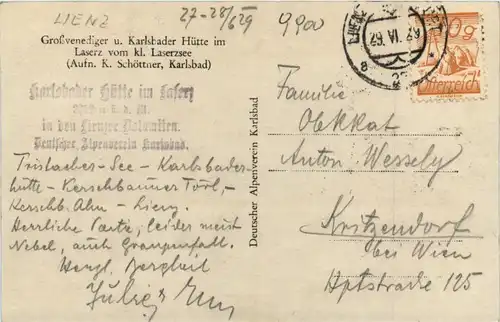 LIENZ
27-28/6 29
9900
Großvenediger u. Karlsbader Hütte im
Laserz vom kl. Laserzsee
(Aufn. K. Schöttner, Karlsbad)
Karlsbader Hütte im Laserz
in den Lienzer Dolomiten.
Deutscher Alpenverein Karlsbad.
Tristacher-See - Karlsbader-
hütte - Kerschbaumer Törl,-
Kerschb. Alm - Lienz.
Herrliche Partie, leider meist
Nebel, auch
Herzl. Bergheil
Deutscher Alpenverein Karlsbad
Österreich
Familie
Anton Wessely
Kritzendorf
bei Wien
Hptstrasse 125